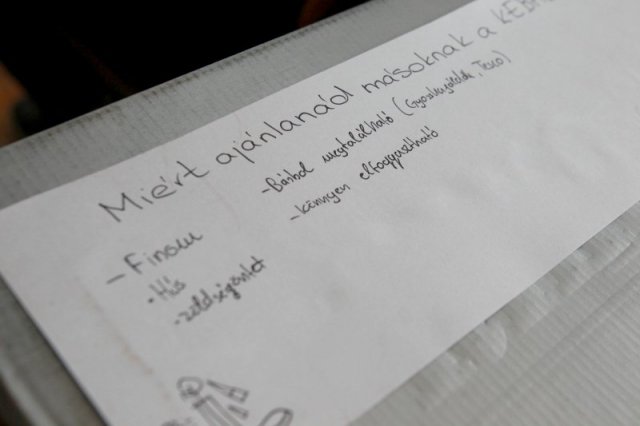 Miért ajánlanád másoknak a KEB
- Finom
• Hús
• zöldségöntet
- Bárhol megtalálható (Gyorséttermek, Tesco)
- könnyen elfogyasztható